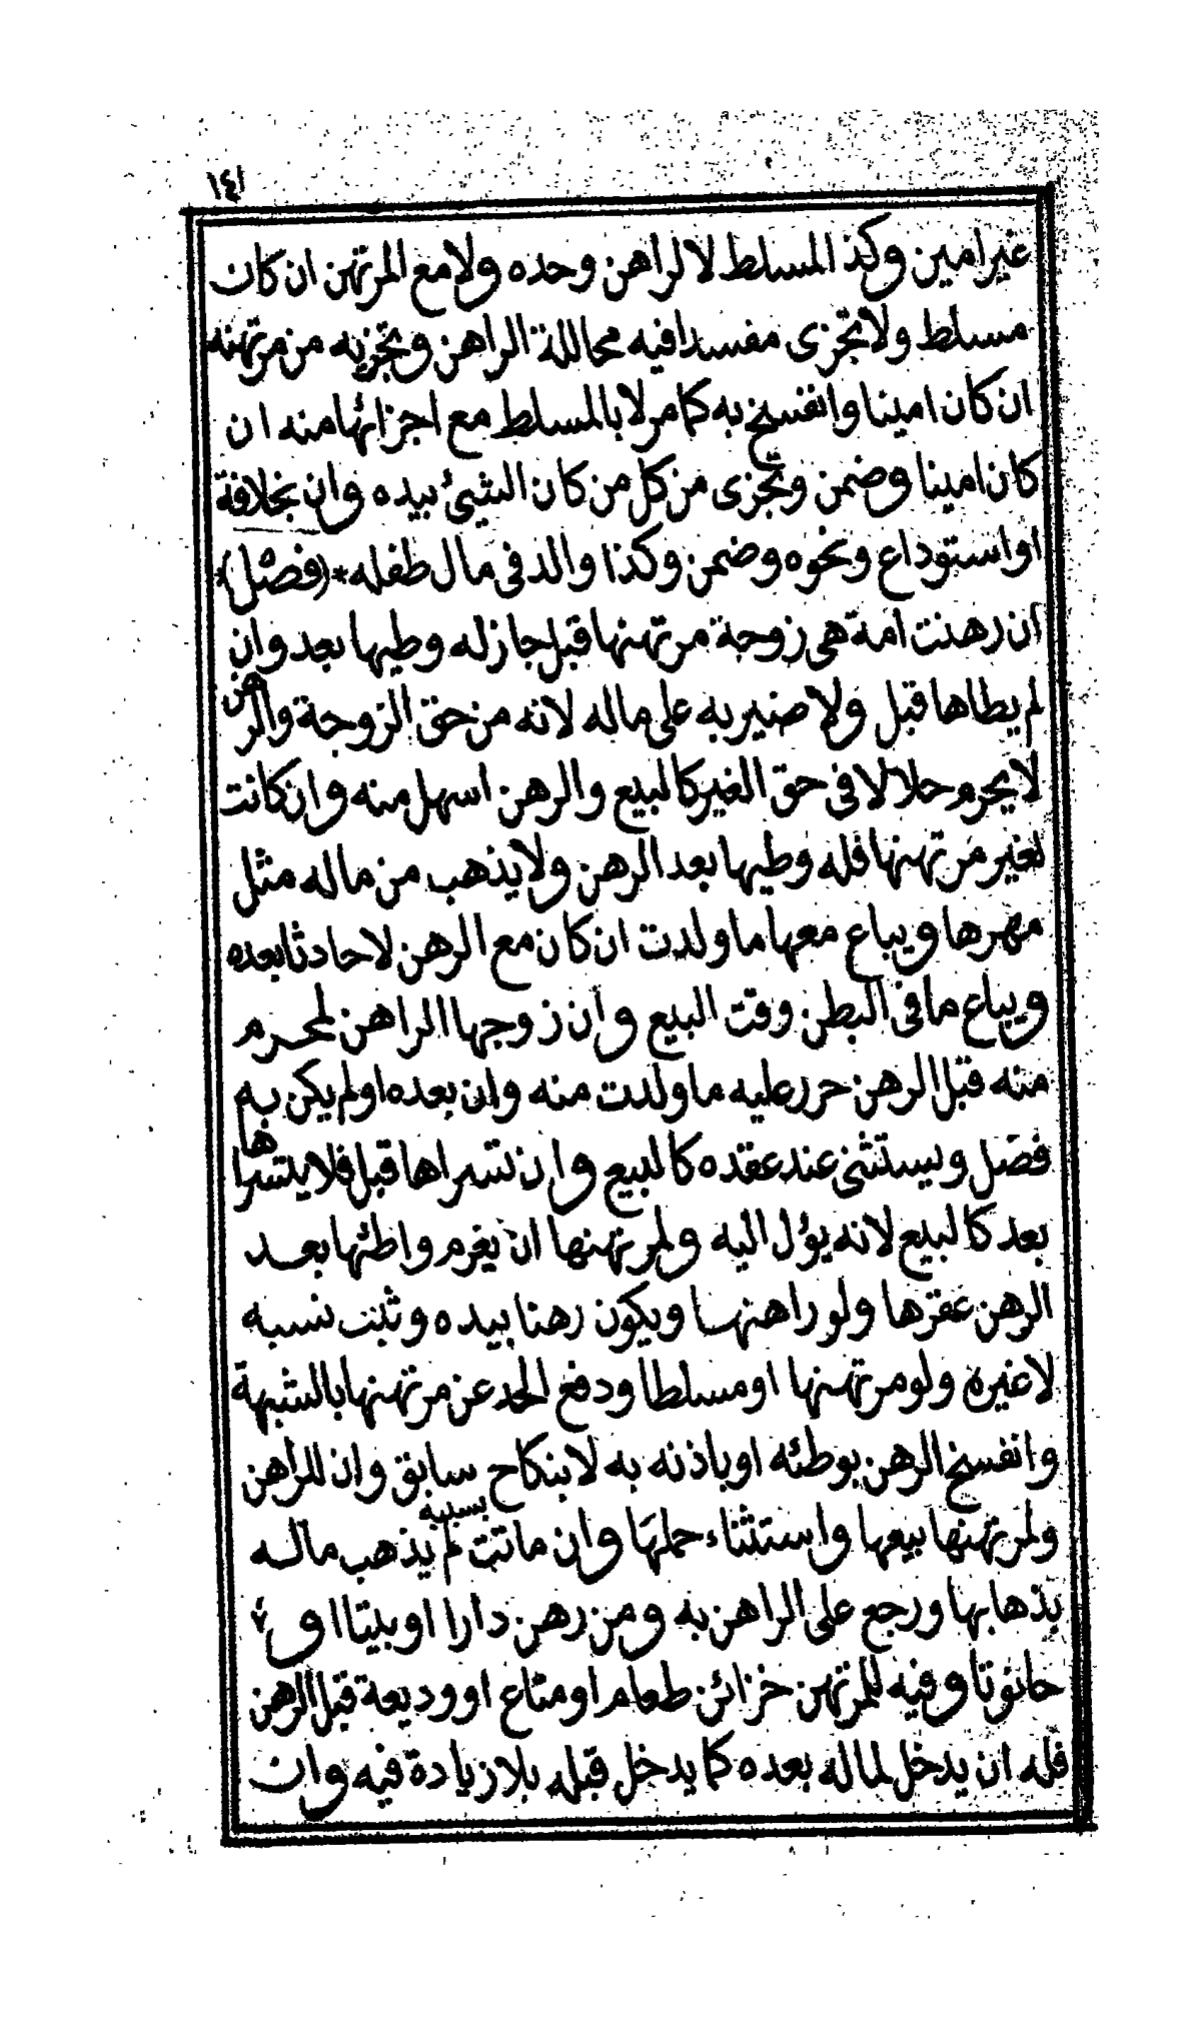 ١٤١
غير امين وكذ المسلط لا لراهن وحده ولا مع المرتهن ان كان
مسلط ولا تجزى مفسدا فيه محاللة الراهن وتجزيه من مرتهنه
ان كان امينا وانفسخ به كما مر لا بالمسلط مع اجزائها منه ان
كان امينا وضمن وتجزى من كل من كان الشيئ بيده وان بخلافة
او استوداع ونحوه وضمن وكذا والد في مال طفله *(فصل)*
ان رهنت امة هى زوجة مرتهنها قبل جاز له وطيها بعد وان
لم يطاها قبل ولا ضير به على ماله لانه من حق الزوجة والرهن
لا يحرم حلالا لا فى حق الغير كالبيع والرهن اسهل منه وان كانت
لغير مرتهنها فله وطيها بعد الرهن ولا يذهب من ماله مثل
مهرها ويباع معها ما ولدت ان كان مع الرهن لا حادثا بعده
ويباع ما فى البطن وقت البيع وان زوجها الراهن لمحرم
منه قبل الرهن حرر عليه ما ولدت منه وان بعده او لم يكن به
فصل ويستثنى عند عقده كالبيع وان تسراها قبل فلا يتسراها
بعد كالبيع لانه يؤل اليه ولمرتهنها ان يغرم واطئها بعد
الرهن عقرها ولو راهنها ويكون رهنا بيده وثبت نسبه
لا غيره ولو مرتهنها او مسلطا ودفع الحد عن مرتهنها بالشبهة
وانفسخ الرهن بوطئه او باذنه به لا بنكاح سابق وان للراهن
ولمرتهنها بيعها واستثناء حملها وان ماتت بسببه لم يذهب ماله
بذهابها ورجع على الراهن به ومن رهن دارا او بيتا او
حانوتا وفيه للمرتهن خزائن طعام او متاع او وديعة قبل الرهن
فله ان يدخل لماله بعده كما يدخل قبله بلا زيادة فيه وان